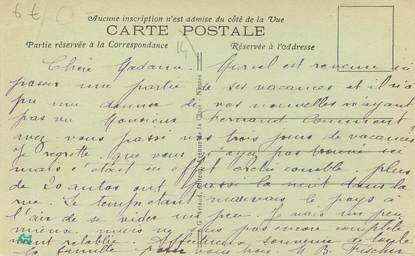 6 €
Aucune inscription n'est admise du côté de la Vue
CARTE POSTALE
Partie réservée à la Correspondance
Réservée à l'Adresse
14
Chère Madame. Marcel est revenu ici
passer une partie de ses vacances et il n'a
pu me donner de vos nouvelles n'ayant
pas vu Monsieur Fernand. Comment
avez vous passé vos trois jours de vacances
Je regrette que vous n'ayez pas trouvé ici
mais c'était en effet comble plus
de 20 autos ont passé la nuit dans la
rue. Le temps étant mauvais le pays a
l'air de se vider un peu. Je vais un peu
mieux mais ne suis pas encore complète
ment rétablie. Affectueux souvenir de toute
la famille pour vous tous M. B. Fischer